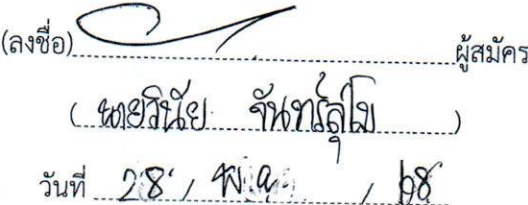 (ลงชื่อ) ผู้สมัคร
( นายวินัย จันทร์สุโข )
วันที่ 28 / พ.ย. / 68